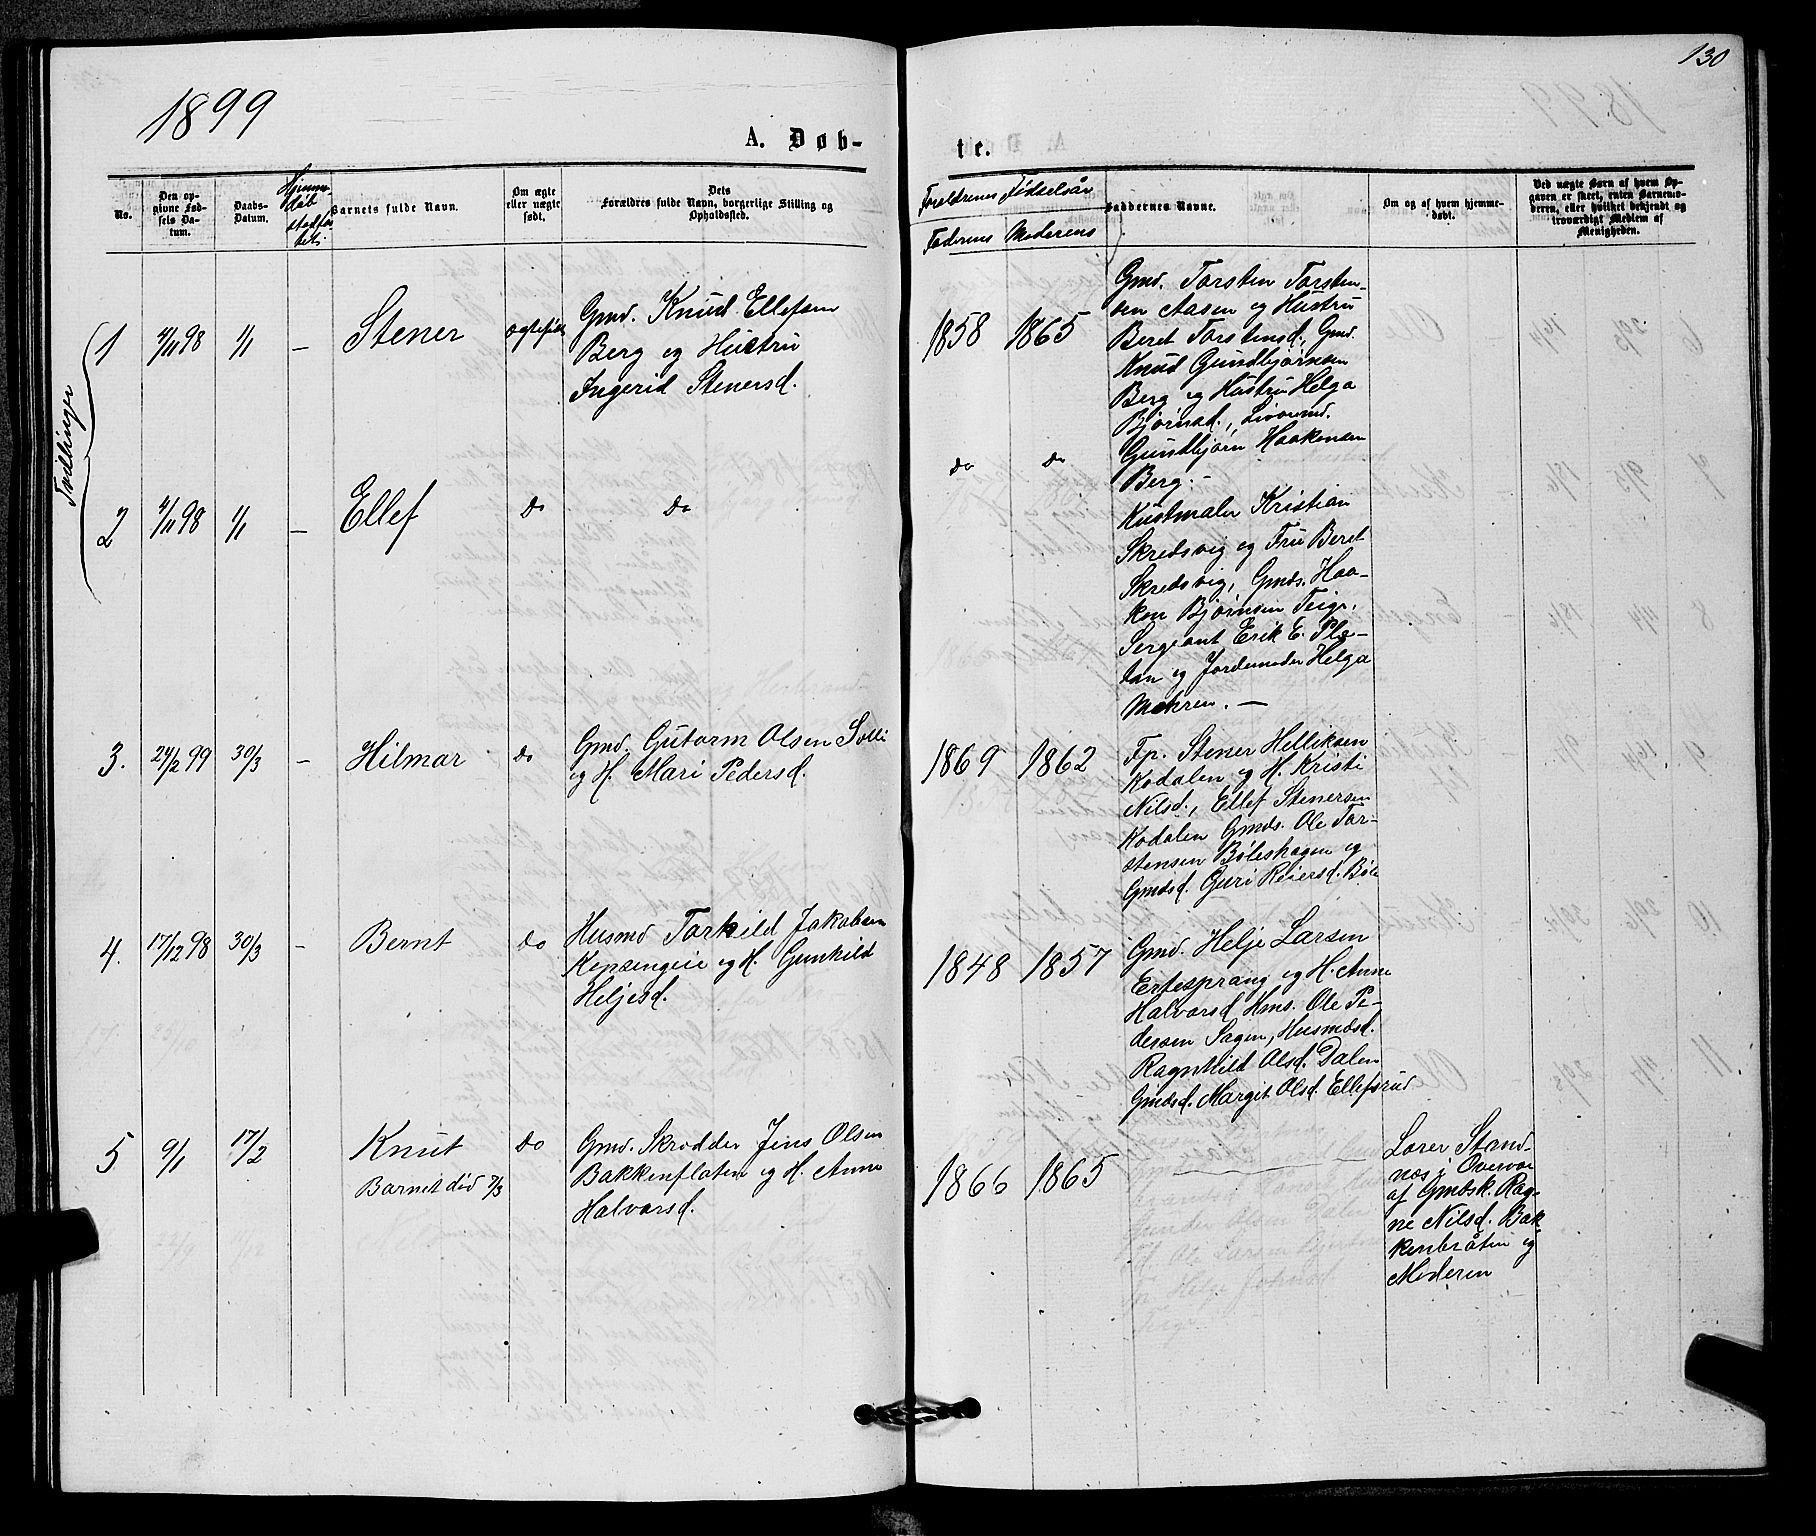 130
1899
A. Døb-
te.
No.
Den op-
givne Fød-
sels Da-
tum.
Daabs-
Datum.
Hjemme-
døb
stadfæ-
tet
Barnets fulde Navn.
Om ægte
eller nægte
født.
Dets
Forældres fulde Navn, borgerlige Stilling og
Opholdssted.
Foreldrenes Fødselsår
Faderens Moderens
Faddernes Navne.
Om og af hvem hjemme-
døbt.
Ved nægte Børn af hvem Op-
gaven er skeet, enten Barnemo-
deren, eller hvilket bekjendt og
troværdigt Medlem af
Menigheden.
Tvillinger
1 4/11 98 1/1 – Stener ægtefødt
Gmd. Knud Ellefsen
Berg og Hustru
Ingerid Stenersd.
1858 1865
Gmd. Torsten Torsten-
sen Aasen og Hustru
Beret Torstensd., Gmd.
Knud Gundbjørnsen
Berg og Hustru Helga
Bjørnsd., Livørmd.
Gundbjørn Haakensen
Berg. –
2 4/11 98 1/1 – Ellef do do
do do
Kustmaler Kristian
Skredsvig og Fru Beret
Skredsvig, Gmds. Haa-
kon Bjørnsen Teige,
Sergeant Erik E. Plæ-
tan og Jordemoder Helga
Mehren. –
3. 24/2 99 30/3 – Hilmar do
Gmd. Gutorm Olsen Solli
og H. Mari Pedersd.
1869 1862
Fp. Stener Helliksen
Kodalen og H. Kristi
Nilsd., Ellef Stenersen
Kodalen Gmds. Ole Tor-
stensen Bøleshagen og
Gmdsd. Guri Reiersd. Bøle
4. 17/12 98 30/3 – Bernt do
Husmd Torkild Jakobsen
Kopsengeie og H. Gunhild
Heljesd.
1848 1857
Gmd. Helje Larsen
Ertesprang og H. Anne
Halvorsd Hms. Ole Pe-
dersen Sagen, Husmdsd.
Ragnhild Olsd. Dalen
Gmdsd. Margit Olsd. Ellefsrud
5 9/1 17/2 Knut do
Barnet død 7/3
Gmd. Skrædder Jens Olsen
Bakkenflaten og H. Anne
Halvorsd.
1866 1865
Lærer Strand-
næs i Overvær
af Gmdsk. Rag-
ne Nilsd. Bak-
kenbråten og
Moderen